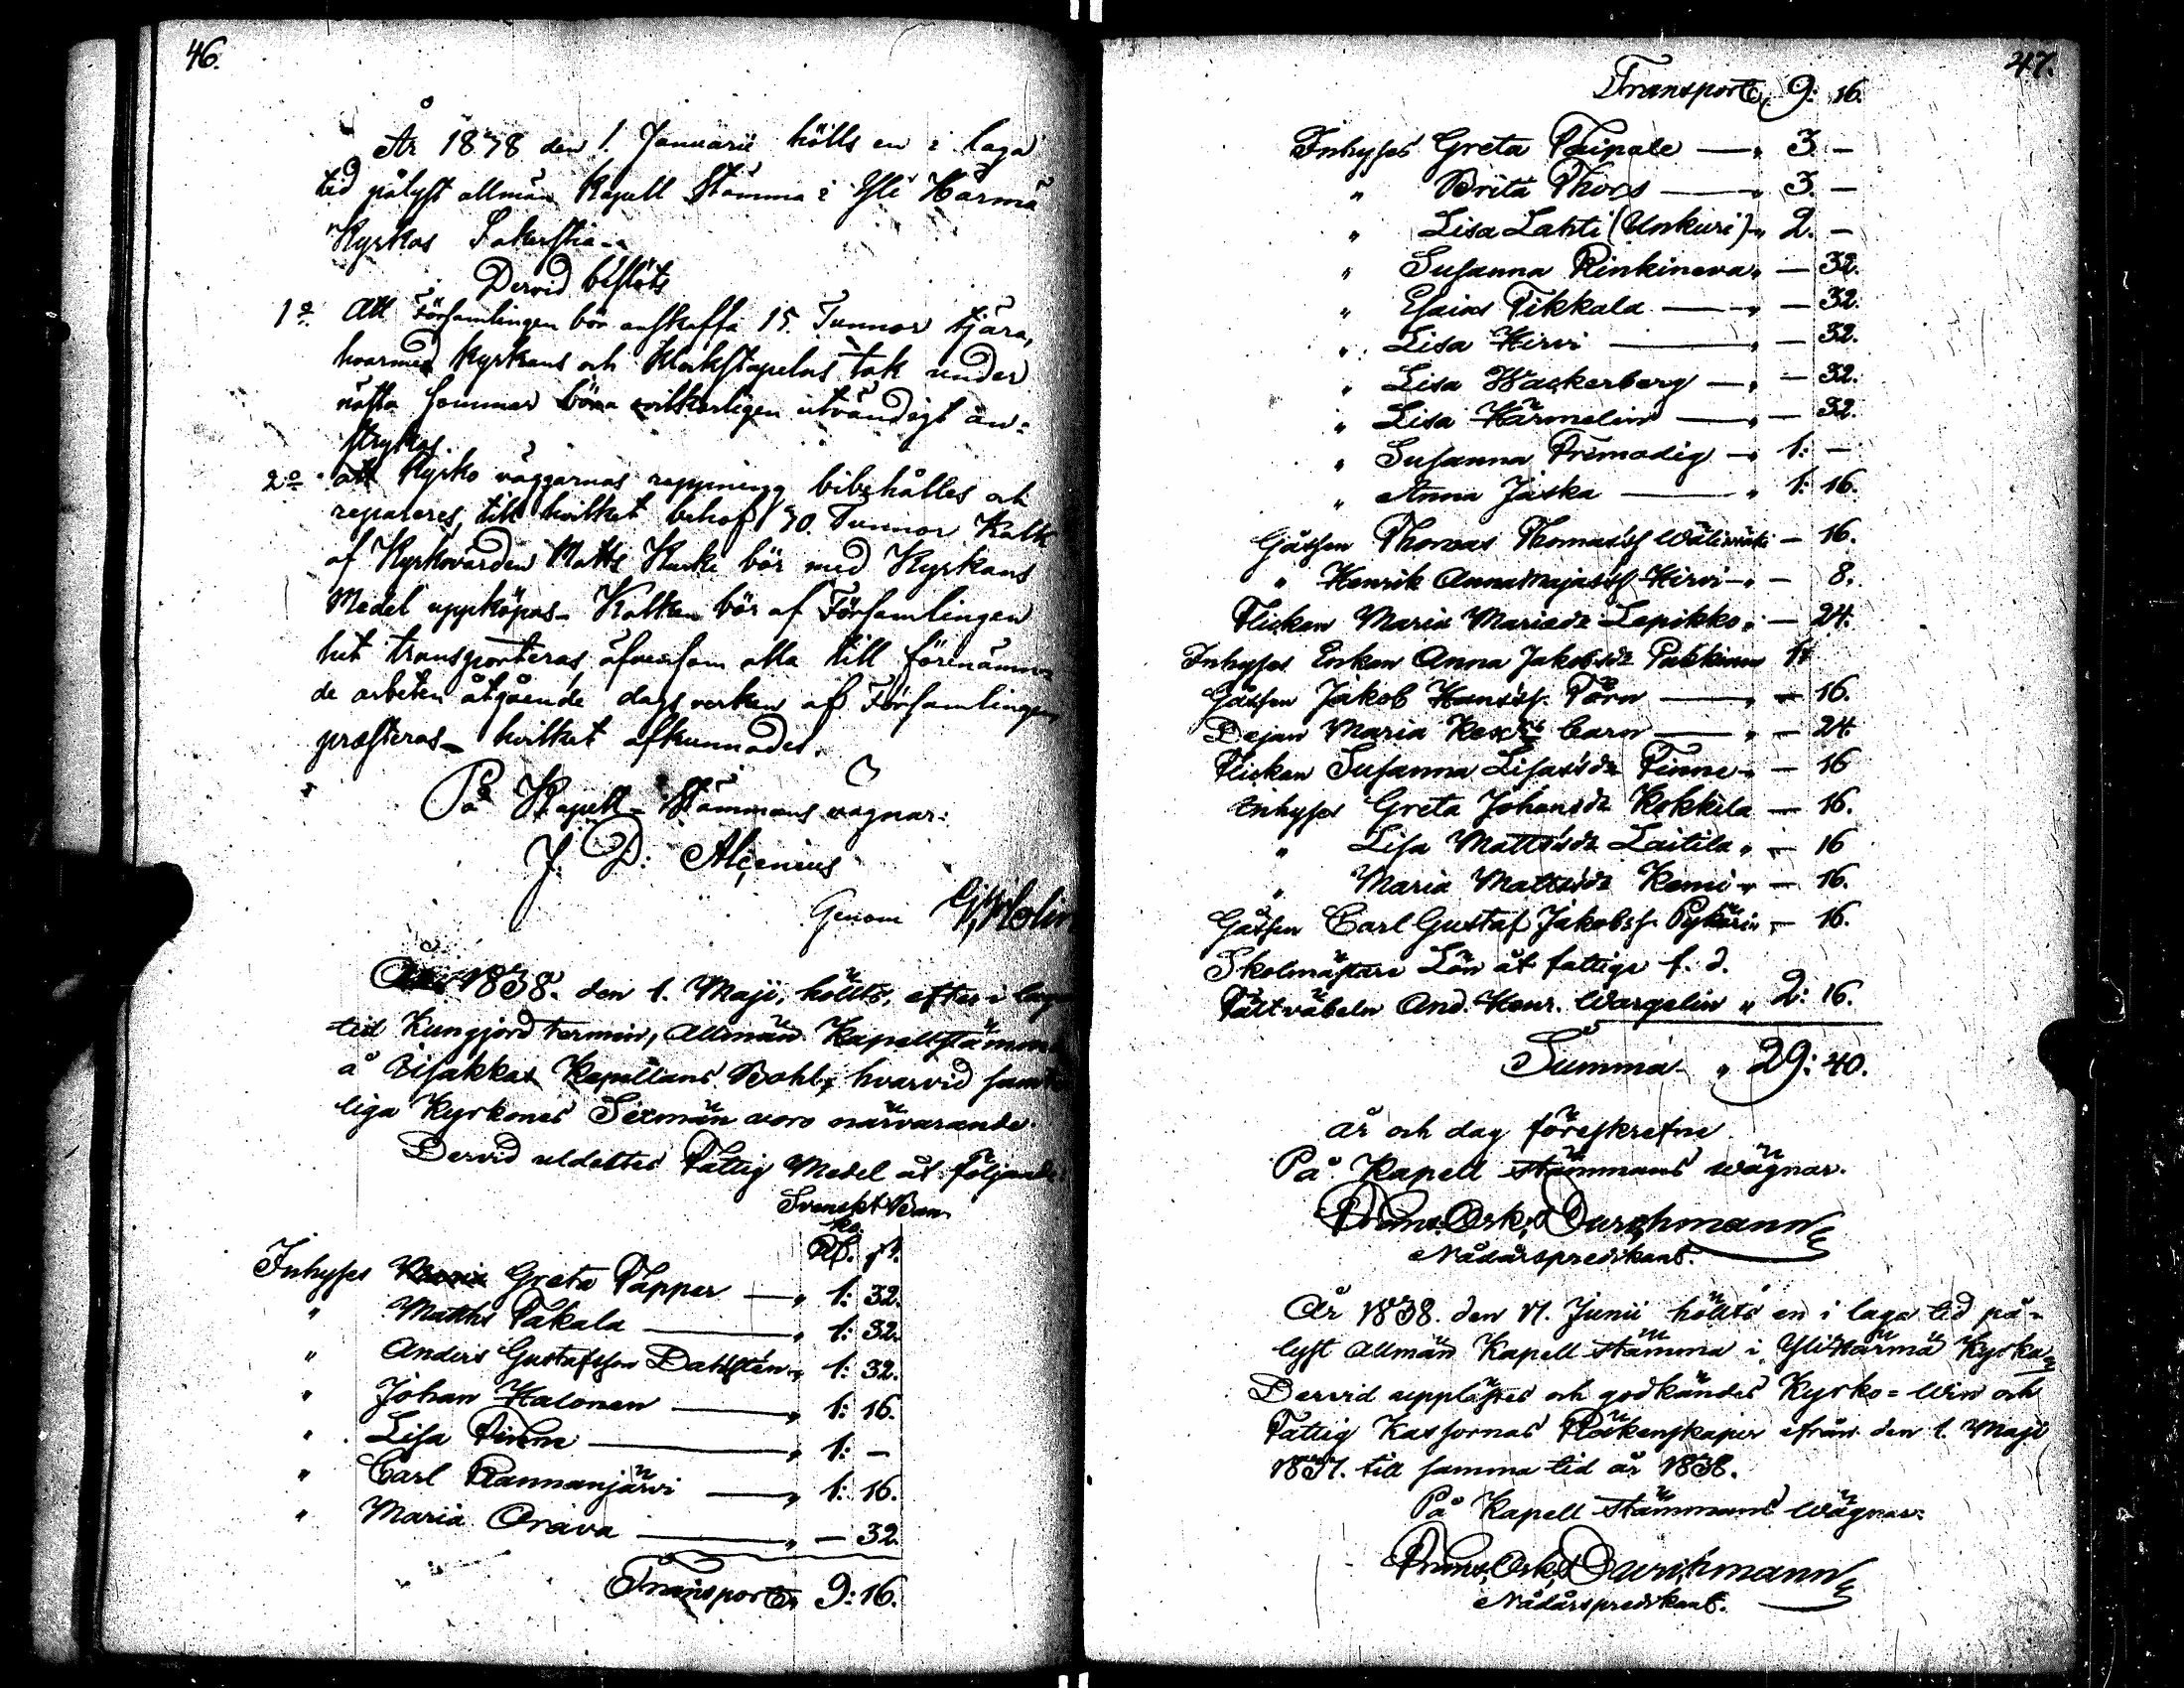 46.
År 1838 den 1. Januarii hölls en i laga
tid pålyst allmän Kapell Stämma i Yli Härmä
Kyrkas Sakerstia
Dervid beslöts
1º Att Församlingen bör anskaffa 15. Tunnor tjära,
hvarmed Kyrkans och Klockstapelns tak under
nästa Sommar böra ovilkorligen utvändigt an-
strykas.
2º att Kyrko väggarnas rappning bibehålles och
repareres, till hvilket behof 30. Tunnor Kalk
af Kyrkovärden Matts Kurki bör med Kyrkans
Medel uppköpas. Kalken bör af Församlingen
hit transporteras, äfvensom alla till förenämn-
de arbeten åtgående dagsverken af Församlingen
præsteras. hvilket afkunnades.
På Kapell-Stämmans vägnar:
J. D: Alcenius
Genom
År 1838. den 1. Maji, hölts, efter i laga
tid Kungjord termin, Allmän Kapellstämma
å Kapellans Bohl, hvarvid samt-
liga Kyrkones Sexmän voro närvarande.
Dervid utdeltes Fattig Medel åt följande:
Svenskt Ban-
ko
Rd. sk.
Inhyses Greta Tapper — " 1: 32.
" Matths Takala — " 1: 32.
" Anders Gustafsson Dahlsten " 1: 32.
" Johan Halonen — " 1: 16.
" Lisa Finne — " 1: —
" Carl Rannanjärvi — " 1: 16.
" Maria Orava — " — 32.
Transport " 9: 16.
47.
Transport " 9: 16.
Inhyses Greta Taipale — " 3. —
" Brita Thors — " 3. —
" Lisa Lahti (Unkuri) " 2. —
" Susanna Rinkineva " — 32.
" Esaias Tikkala — " — 32.
" Lisa Hirvi — " — 32.
" Lisa Wackerberg — " — 32.
" Lisa Härmelin — " — 32.
" Susanna Frimodig — " 1: —
" Anna Jaska — " 1: 16.
Gåssen Thomas Thomass. Wälimäki — 16.
" Henrik Annamajass. Hirvi " — 8.
Flickan Maria Mariasdr Lepikko " — 24.
Inhyses Enkan Anna Jakobsdr Pakkinen 1:
Gåssen Jakob Hanss. Törn — " — 16.
Dejan Maria Carn — " — 24.
Flickan Susanna Lisasdr Finne " — 16
Inhyses Greta Johansdr Kokkila — 16.
" Lisa Mattsdr Laitila " — 16
" Maria Mattsdr Kemi " — 16.
Gåssen Carl Gustaf Jakobss. Pykäri " — 16.
Skolmästare Lön åt fattige f. d.
Fältväbeln And. Henr. Wargelin " 2: 16.
Summa " 29: 40.
år och dag föreskrefne
På Kapell stämmans wägnar.
Frans Osk. Durchmann
Nådårspredikant.
År 1838. den 17. Junii hölts en i laga tid på-
lyst Allmän Kapell stämma i Ylihärmä Kyrka
Dervid upplästes och godkändes Kyrko= Win och
Fattig Kassornas Räkenskaper ifrån den 1. Maji
1837. till samma tid år 1838.
På Kapell stämmans Wägnar.
Frans Osk. Durchmann
Nådårspredikant.